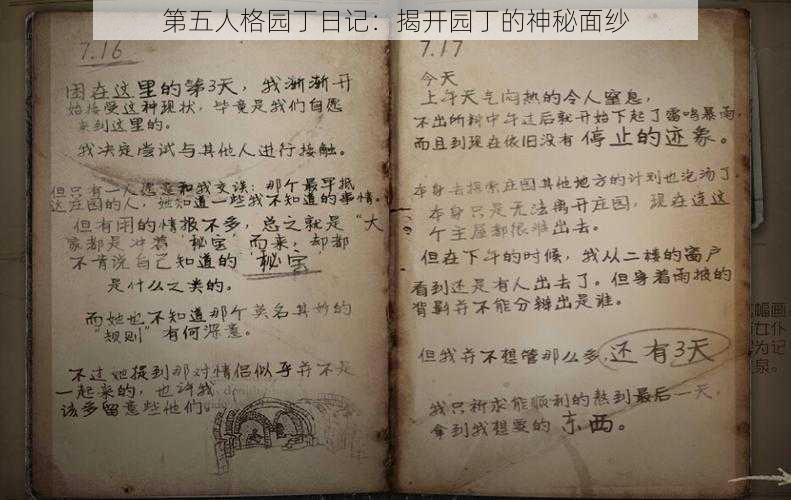 第五人格园丁日记：揭开园丁的神秘面纱
7.16
困在这里的第3天，我渐渐开
始接受这种现状，毕竟是我们自愿
来到这里的。
我决定尝试与其他人进行接触。
但只有一人愿意和我交谈：那个最早抵
达庄园的人，她知道一些我不知道的事情。
但有用的情报不多，总之就是“大
家都是冲着‘秘宝’而来，却都
不肯说自己知道的‘秘宝’
是什么之类的。
而她也不知道那个莫名其妙的
“规则”有何深意。
不过她提到那对情侣似乎并不是
一起来的，也许我
该多留意些他们
7.17
今天
上午天气闷热的令人窒息，
不出所料中午过后就开始下起了雷鸣暴雨，
而且到现在依旧没有停止的迹象。
本身去探索庄园其他地方的计划也泡汤了
本身只是无法离开庄园，现在连这
个主屋都很难出去。
但在下午的时候，我从二楼的窗户
看到还是有人出去了。但穿着雨披的
背影并不能分辨出是谁。
但我并不想管那么多，还有3天
我只祈求能顺利的熬到最后一天，
拿到我想要的东西。
幅画
女仆
为记
泉。